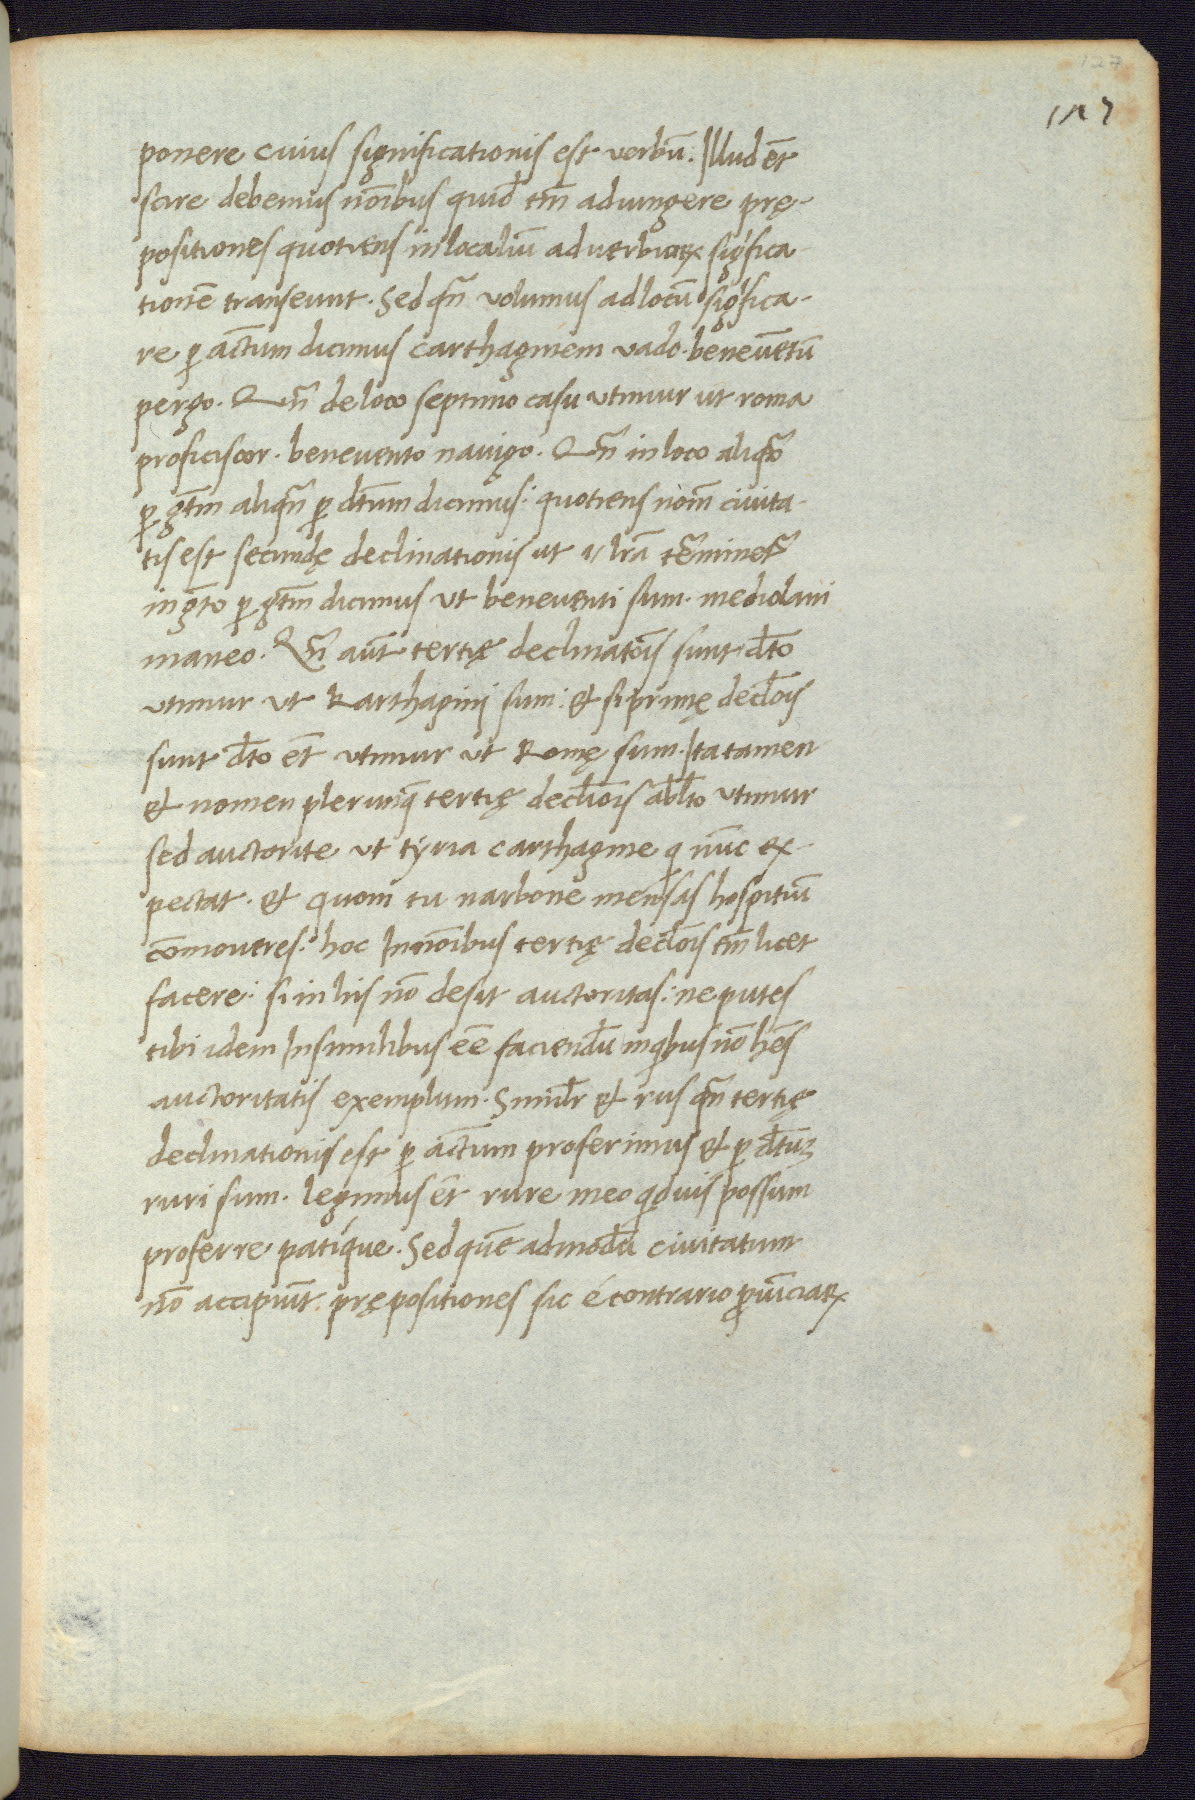 127
117
ponere cuius significationis est verbũ. Illud et̃
scire debemus noĩbus quid̃ tm̃ adiungere prę-
positiones quotiens in localiũ aduerbioꝝ sigꝰfica
tionẽ transeunt. Sed qñ volumus ad locũ sigꝰfica-
re ꝑ actum dicimus carthaginem vado. beneuẽtũ
pergo. Qñ de loco septimo casu vtimur ut roma
proficiscor. beneuento nauigo. Qñ in loco aliqñ
ꝑ gt̃m aliqñ ꝑ dt̃um dicimus: quotiens nom̃ ciuita-
tis est secundę declinationis ut i lr̃a termineť
in gt̃o ꝑ gt̃m dicimus vt beneuenti sum. mediolani
maneo. Qñ aut̃ tertię declinatõis sunt dt̃o
vtimur vt karthagini sum: et si primę decl̃ois
sunt dt̃o et̃ vtimur ut Romę sum. Ita tamen
et nomen plerunq̃ tertię decl̃iois abl̃to vtimur
sed auctorite vt tyria carthagine q̃ nũc ex-
pectat. et quom tu narbone mensas hospitiũ
cõmoueres: hoc In noĩbus tertię decl̃ois tm̃ licet
facere: si in his nõ desit auctoritas: ne putes
tibi idem In similibus eẽ faciendũ in qͥbus nõ hẽs
auctoritatis exemplum. Simil̃r et rus qñ tertię
declinationis est ꝑ actum proferimus et ꝑ dt̃uꝫ
ruri sum. legimus et̃ rure meo qͥduis possum
proferre patique. Sed quẽ admodũ ciuitatum
nõ accipiũt prępositiones sic é contrario ꝓuĩciaꝝ